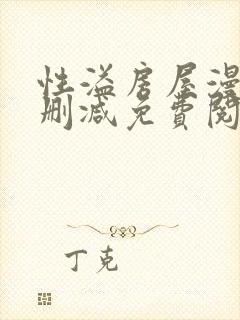 性溢房屋漫
删减免費閱
丁克